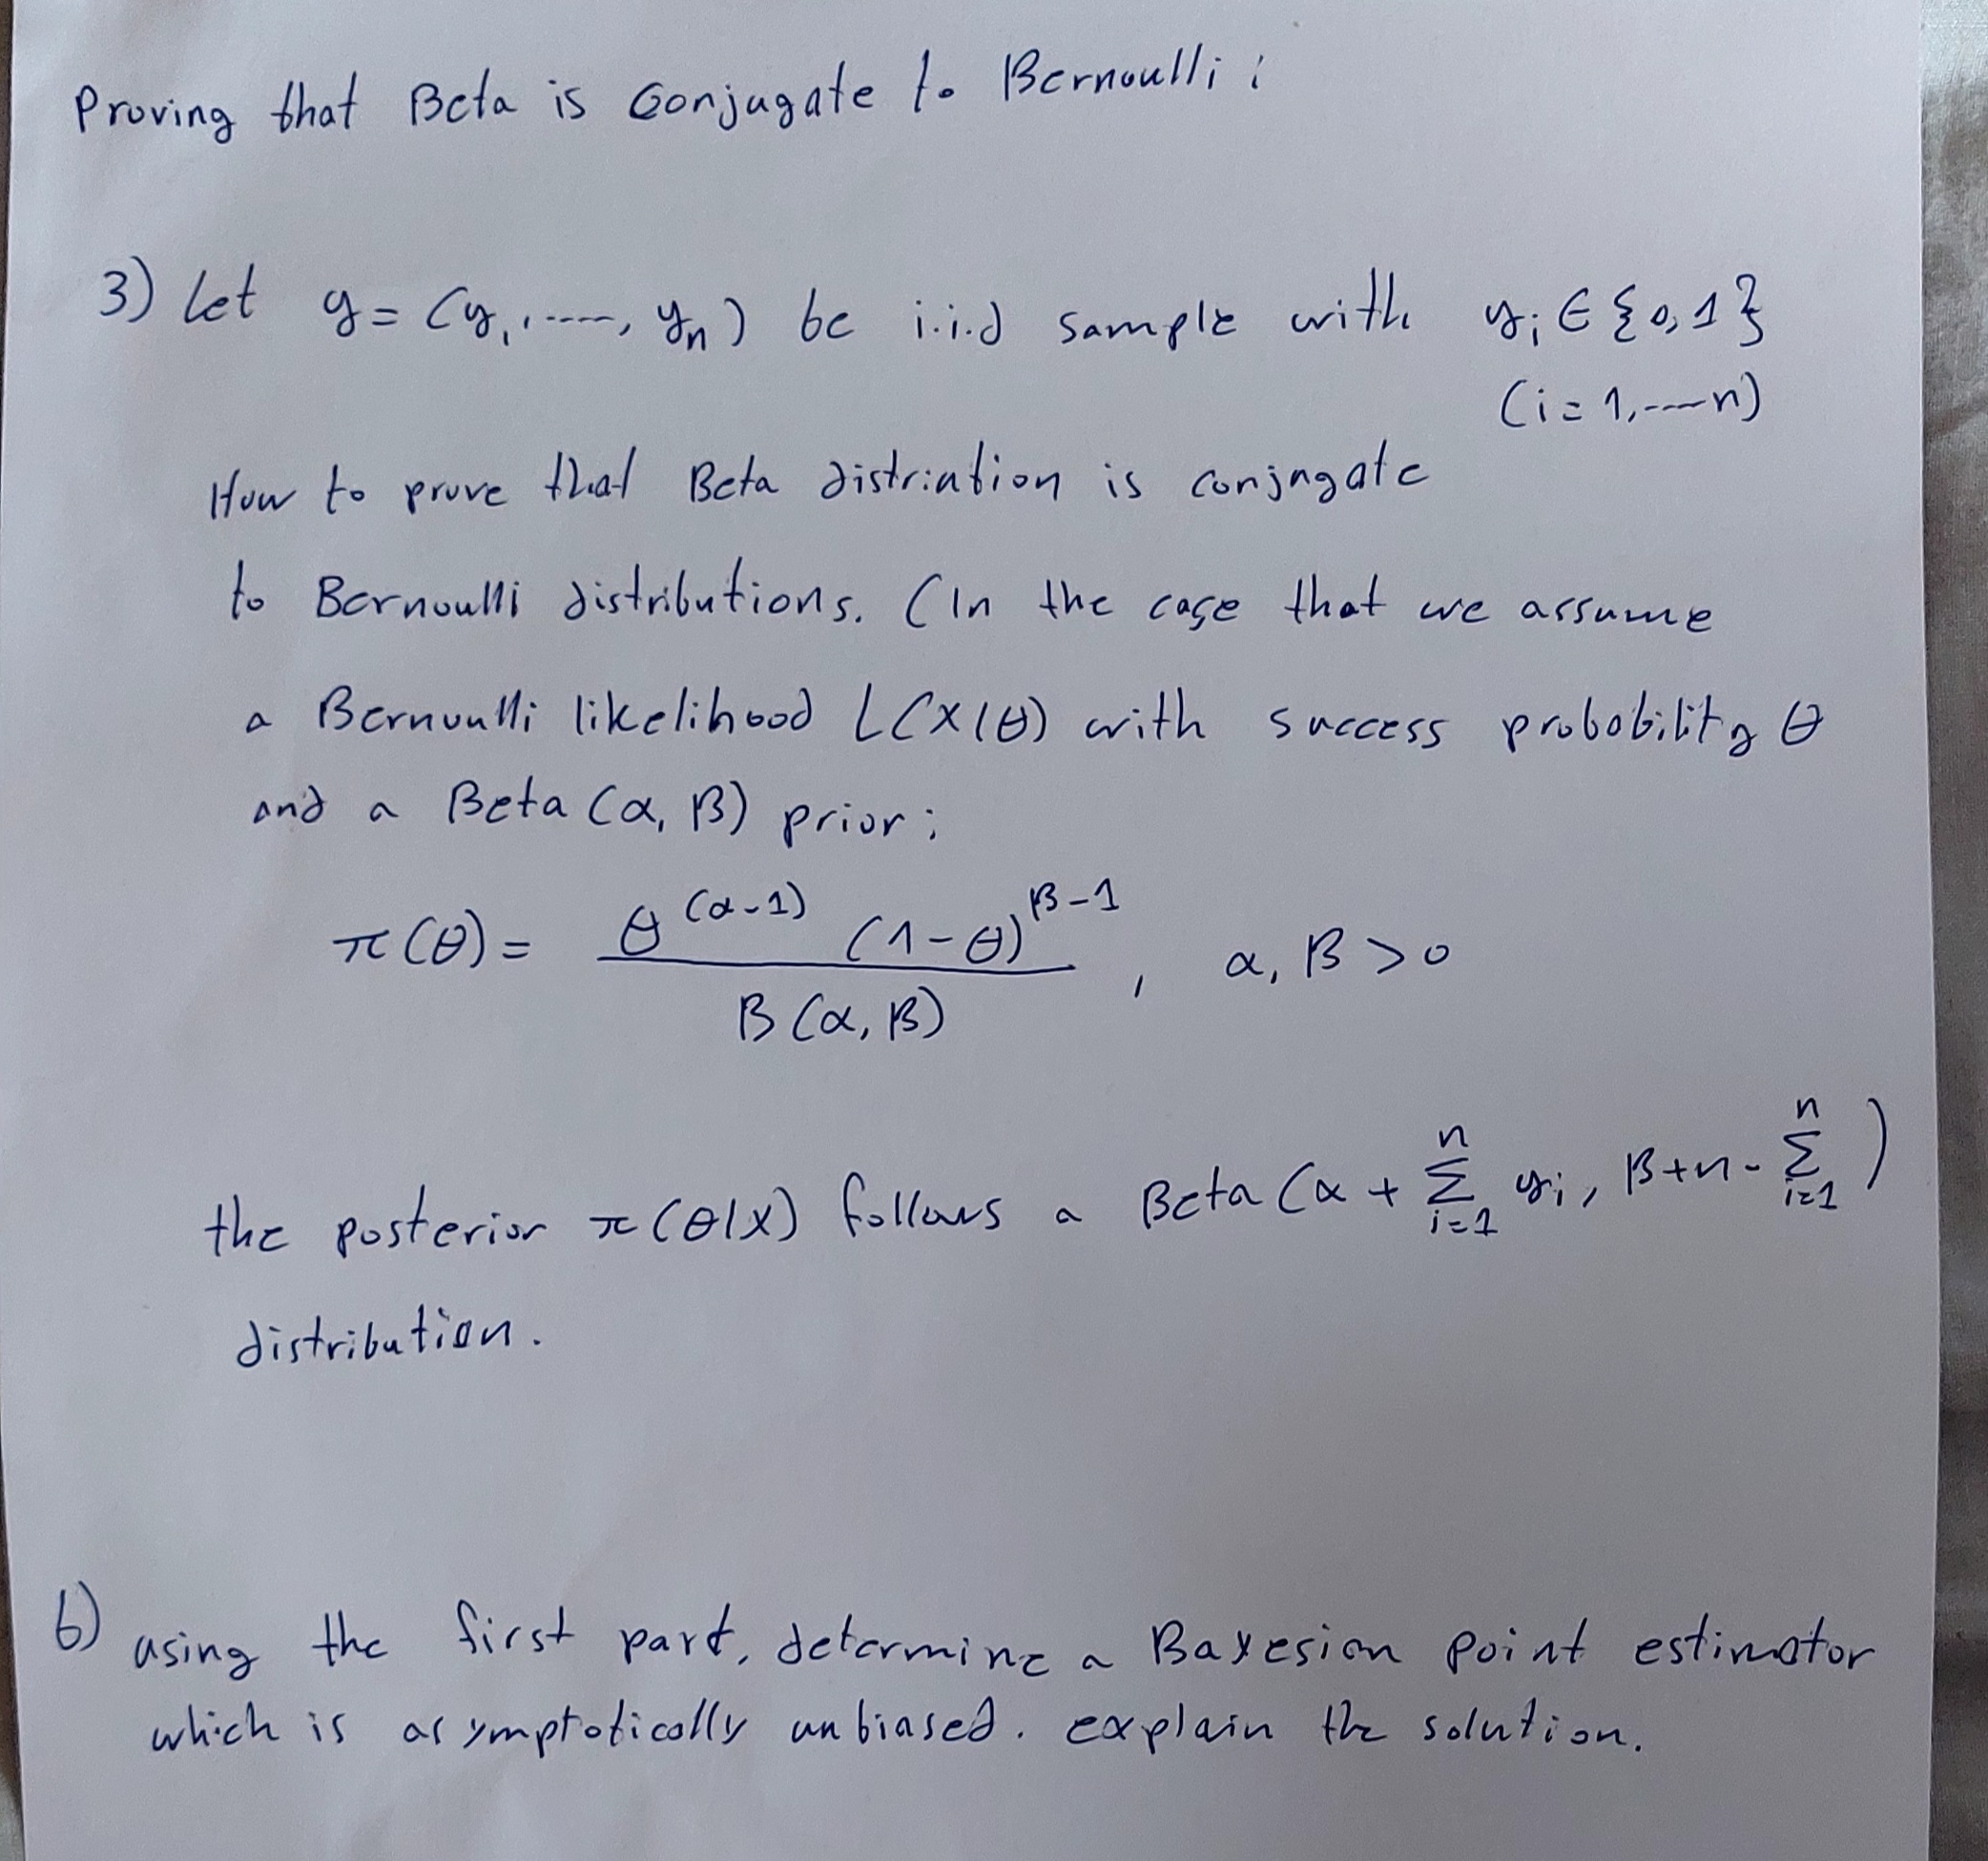 Proving that Beta is Conjugate to Bernoulli:
3) Let y = (y₁, ----, yₙ) be i.i.d sample with yᵢ ∈ {0, 1}
(i = 1, ---- n)
How to prove that Beta distriution is conjugate
to Bernoulli distributions. (In the case that we assume
a Bernoulli likelihood L(X|θ) with success probability θ
and a Beta (α, β) prior:
π(θ) = θ^(α-1) (1-θ)^(β-1) / B(α, β) , α, β > 0
the posterior π(θ|X) follows a Beta (α + Σ_{i=1}^{n} yᵢ, β+n- Σ_{i=1}^{n} )
distribution.
6) using the first part, determine a Bayesian Point estimator
which is asymptotically unbiased. explain the solution.